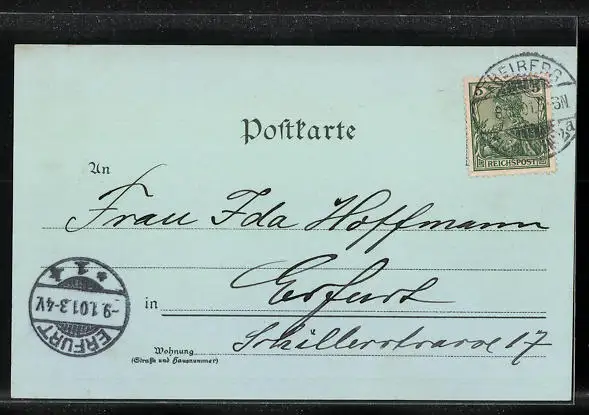 Postkarte
5 5
REICHSPOST
An
Frau Ida Hoffmann
Erfurt
in
Schillerstrasse 17
Wohnung
(Straße und Hausnummer)
* 1 *
-9.1.01.3-4V.
ERFURT